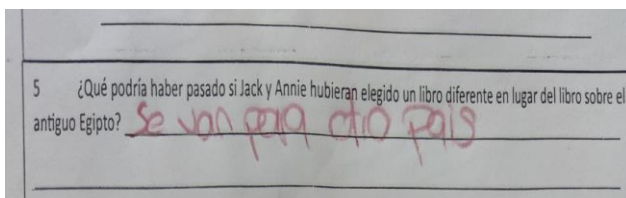 5 ¿Qué podría haber pasado si Jack y Annie hubieran elegido un libro diferente en lugar del libro sobre el
antiguo Egipto? Se van para otro pais